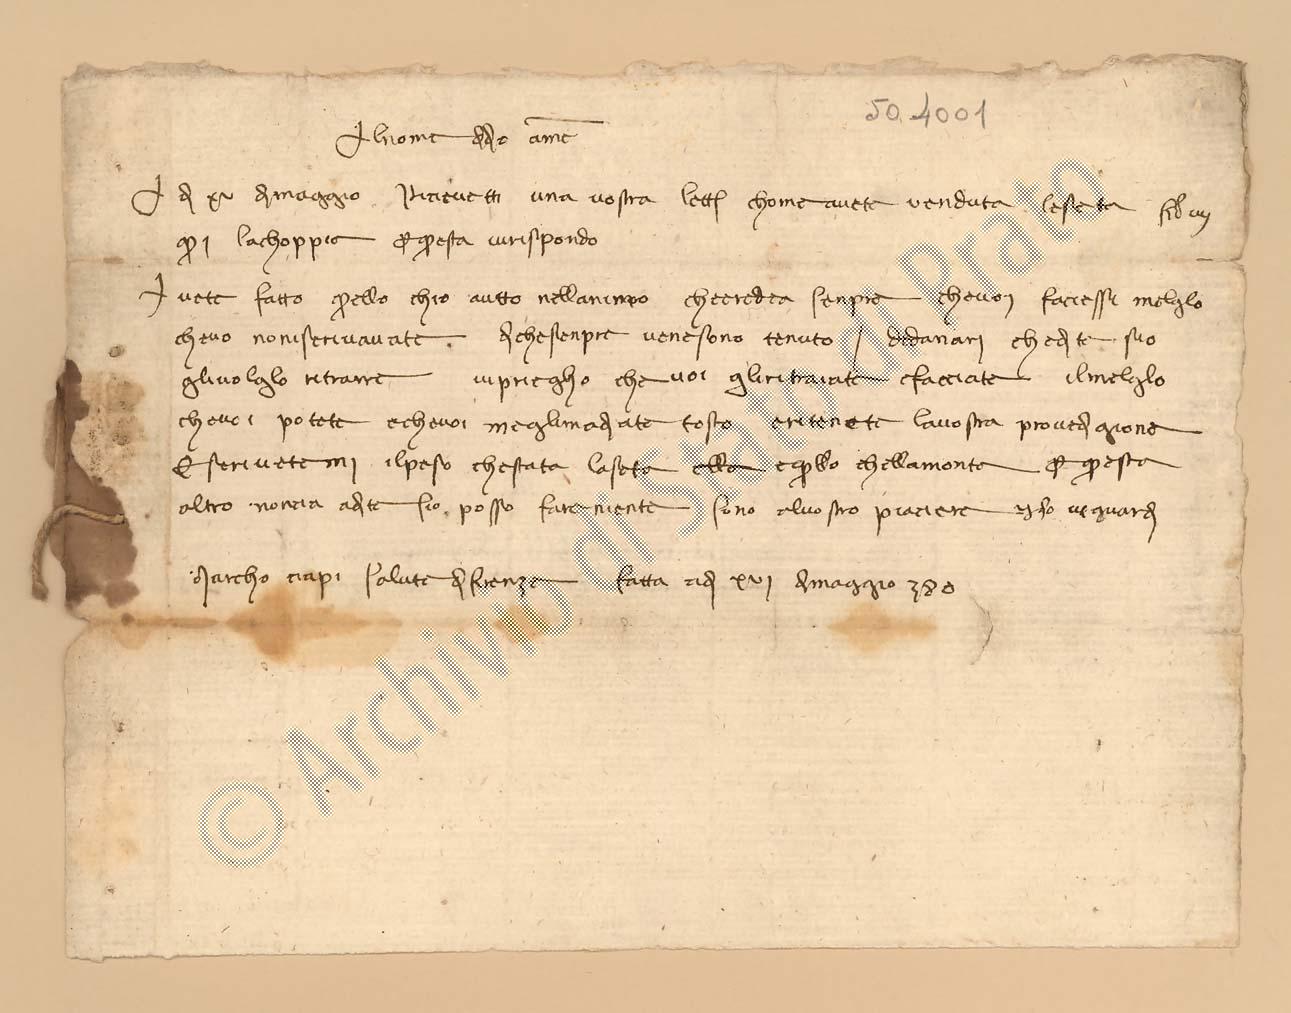 50.4001
Al nome di dio ame
A di xv di maggio Ricievetti una vostra lett chome avete venduta la seta
la choppia e questa vi rispondo
Avete fatto quello chio auto nell animo che credea senpre che voi faciessi melglo
che vo non iscrivavate di che senpre ve ne sono tenuto de danari che di te suo
gli volglo ritrarre vi priegho che voi gli ritraiate e facciate il melglo
che voi potete e che voi me gli mandiate tosto e ritenete la vostra provedigione
E scrivetemi il peso ch e stata la seta e quello chella monta e questa
altro non cia a dite sio posso fare niente sono al vostro piaciere idio vi guardi
Marcho ciapi salute di firenze fatta a di xvi di maggio 380
© Archivio di Stato di Prato